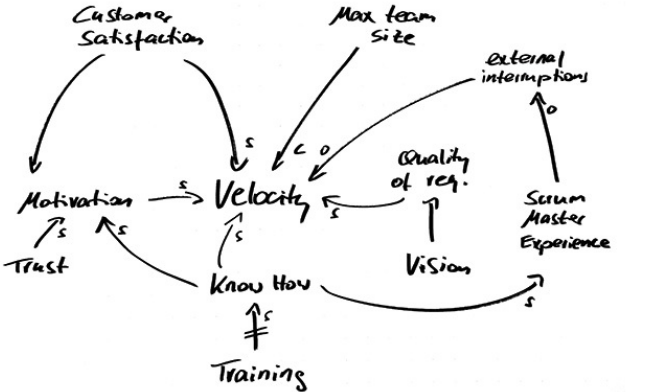 Customer
Satisfaction
Max team
size
external
interruptions
s
c
o
o
Quality
of req.
Motivation
s
Velocity
s
Scrum
Master
Experience
s
s
s
Trust
Vision
Know How
s
s
Training